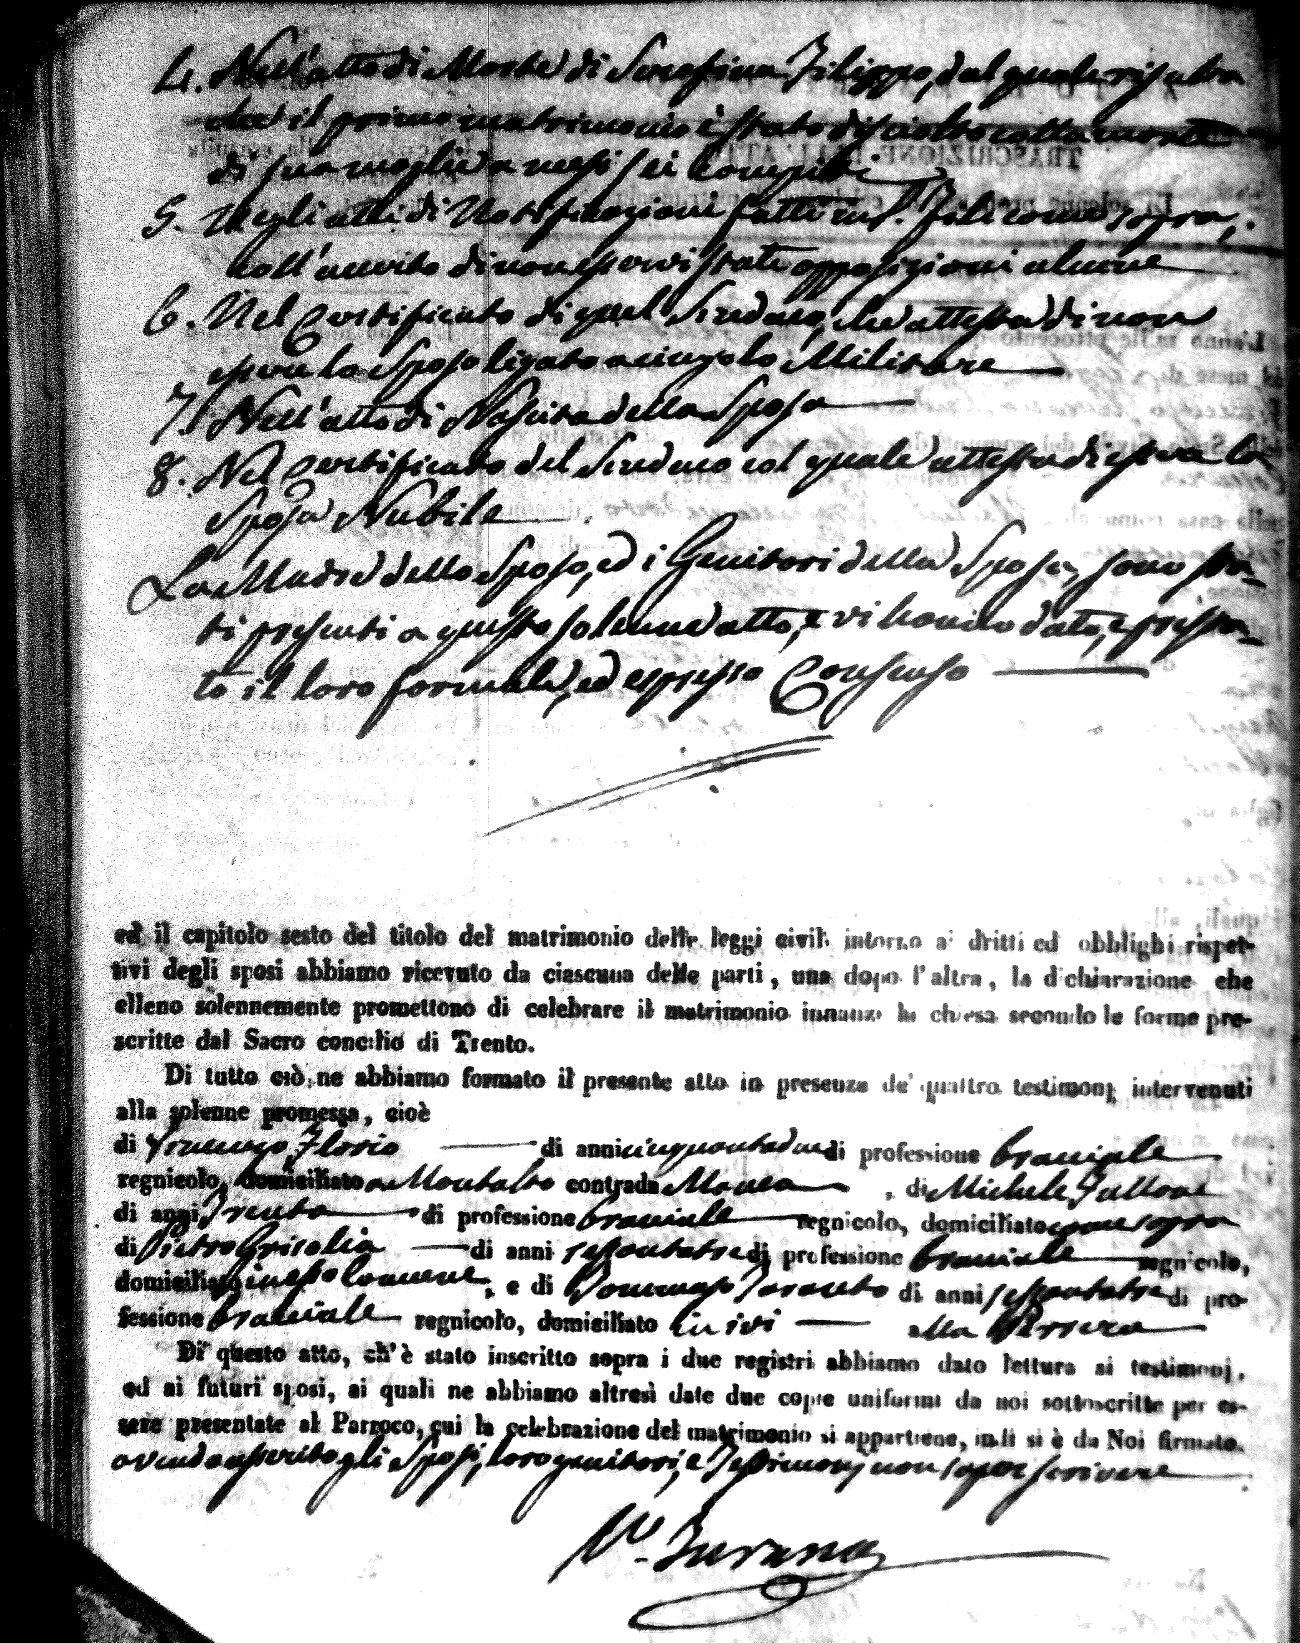 4. Nell'atto di Morte di Serafina Filippo, dal quale risulta
che il primo matrimonio è stato disciolto colla morte
di sua moglie a mesi sei compiti
5. Negli atti di Notificazioni fatti in S. Fili come sopra,
coll'accerto di non esservi stati opposizioni alcune
6. Nel Certificato di quel Sindaco, che attesta di non
essere lo Sposo ligato a cingolo Militare
7. Nell'atto di Nascita della Sposa
8. Nel Certificato del Sindaco col quale attesta di essere la
Sposa Nubile
La Madre dello Sposo, ed i Genitori della Sposa, sono sta-
ti presenti a questo solenne atto, e vi hanno dato, e presta-
to il loro formale, ed espresso Consenso
ed il capitolo sesto del titolo del matrimonio delle leggi civili intorno ai dritti ed obblighi rispet-
tivi degli sposi abbiamo ricevuto da ciascuna delle parti, una dopo l'altra, la dichiarazione che
elleno solennemente promettono di celebrare il matrimonio innanzi la chiesa secondo le forme pre-
scritte dal Sacro concilio di Trento.
Di tutto ciò ne abbiamo formato il presente atto in presenza de' quattro testimonj intervenuti
alla solenne promessa, cioè
di Florio di anni cinquantadue di professione bracciale
regnicolo, domiciliato a Montalto contrada , di Michele
di anni trenta di professione bracciale regnicolo, domiciliato come sopra
di Pietro Grisolia di anni sessantatre di professione bracciale regnicolo,
domiciliato in esso comune, e di Tommaso Taranto di anni sessantatre di pro-
fessione bracciale regnicolo, domiciliato in ivi alla
Di questo atto, ch'è stato inscritto sopra i due registri abbiamo dato lettura ai testimonj,
ed ai futuri sposi, ai quali ne abbiamo altresì date due copie uniformi da noi sottoscritte per es-
sere presentate al Parroco, cui la celebrazione del matrimonio si appartiene, indi si è da Noi firmato.
avendo asserito gli Sposi, loro genitori, e Testimonj non saper scrivere